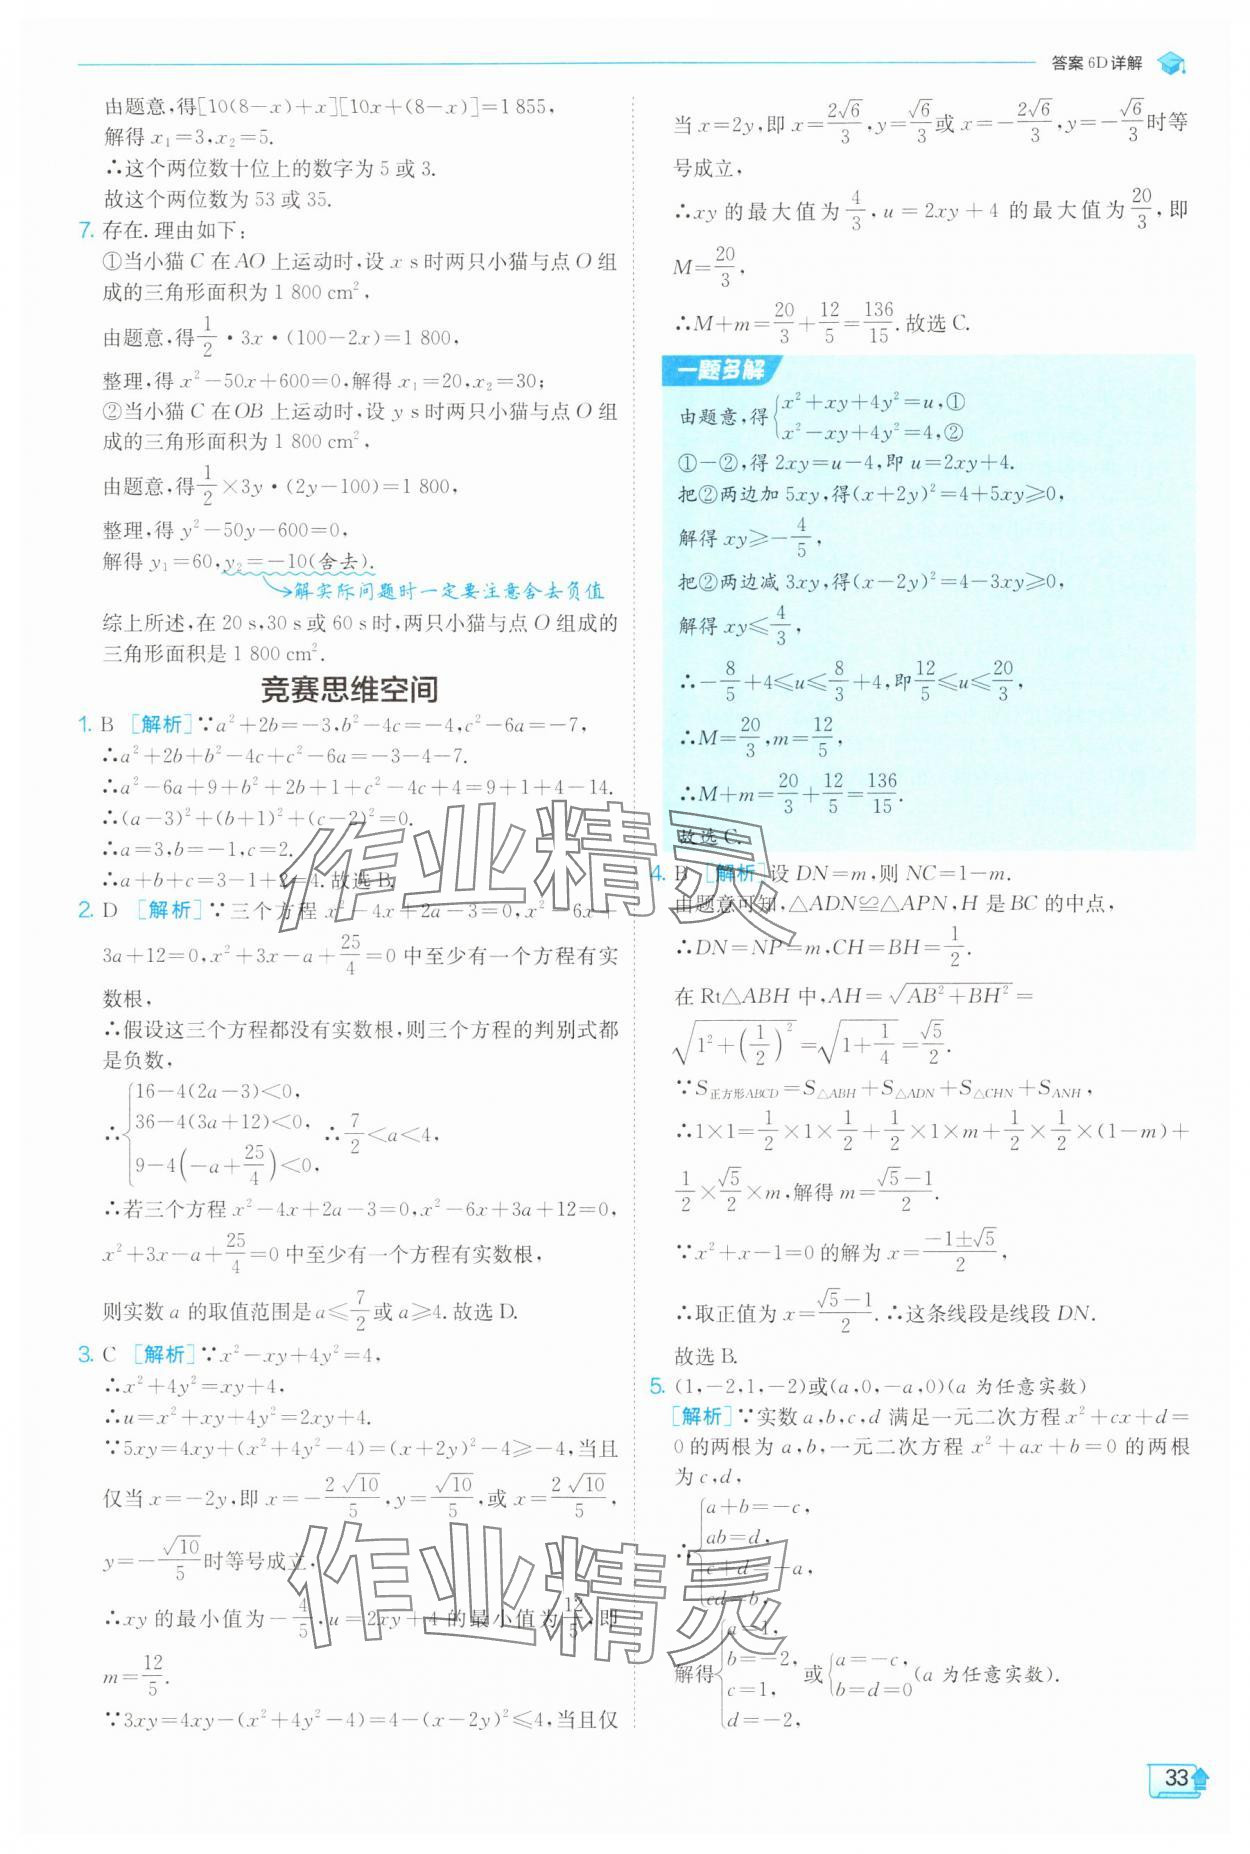 答案 6D 详解
由题意,得[10(8-x)+x][10x+(8-x)]=1 855,
解得 x₁=3,x₂=5.
∴这个两位数十位上的数字为 5 或 3.
故这个两位数为 53 或 35.
7. 存在. 理由如下:
①当小猫 C 在 AO 上运动时,设 x s 时两只小猫与点 O 组
成的三角形面积为 1 800 cm²,
由题意,得1/2·3x·(100-2x)=1 800,
整理,得 x²-50x+600=0,解得 x₁=20,x₂=30;
②当小猫 C 在 OB 上运动时,设 y s 时两只小猫与点 O 组
成的三角形面积为 1 800 cm²,
由题意,得1/2×3y·(2y-100)=1 800,
整理,得 y²-50y-600=0,
解得 y₁=60,y₂=-10(舍去).
→解实际问题时一定要注意舍去负值
综上所述,在 20 s,30 s 或 60 s 时,两只小猫与点 O 组成的
三角形面积是 1 800 cm².
竞赛思维空间
1. B [解析]∵a²+2b=-3,b²-4c=-4,c²-6a=-7,
∴a²+2b+b²-4c+c²-6a=-3-4-7.
∴a²-6a+9+b²+2b+1+c²-4c+4=9+1+4-14.
∴(a-3)²+(b+1)²+(c-2)²=0.
∴a=3,b=-1,c=2.
∴a+b+c=3-1+2=4. 故选 B.
2. D [解析]∵三个方程 x²-4x+2a-3=0,x²-6x+
3a+12=0,x²+3x-a+25/4=0 中至少有一个方程有实
数根,
∴假设这三个方程都没有实数根,则三个方程的判别式都
是负数,
∴{16-4(2a-3)<0,
36-4(3a+12)<0, ∴7/2<a<4,
9-4(-a+25/4)<0,
∴若三个方程 x²-4x+2a-3=0,x²-6x+3a+12=0,
x²+3x-a+25/4=0 中至少有一个方程有实数根,
则实数 a 的取值范围是 a≤7/2或 a≥4. 故选 D.
3. C [解析]∵x²-xy+4y²=4,
∴x²+4y²=xy+4,
∴u=x²+xy+4y²=2xy+4.
∵5xy=4xy+(x²+4y²-4)=(x+2y)²-4≥-4,当且
仅当 x=-2y,即 x=-2√10/5,y=√10/5,或 x=2√10/5,
y=-√10/5时等号成立,
∴xy 的最小值为-4/5,u=2xy+4 的最小值为12/5,即
m=12/5.
∵3xy=4xy-(x²+4y²-4)=4-(x-2y)²≤4,当且仅
当 x=2y,即 x=2√6/3,y=√6/3或 x=-2√6/3,y=-√6/3时等
号成立,
∴xy 的最大值为4/3,u=2xy+4 的最大值为20/3,即
M=20/3,
∴M+m=20/3+12/5=136/15. 故选 C.
一题多解
由题意,得{x²+xy+4y²=u,①
x²-xy+4y²=4,②
①-②,得 2xy=u-4,即 u=2xy+4.
把②两边加 5xy,得(x+2y)²=4+5xy≥0,
解得 xy≥-4/5,
把②两边减 3xy,得(x-2y)²=4-3xy≥0,
解得 xy≤4/3,
∴-8/5+4≤u≤8/3+4,即12/5≤u≤20/3,
∴M=20/3,m=12/5,
∴M+m=20/3+12/5=136/15.
故选 C.
4. B [解析]设 DN=m,则 NC=1-m.
由题意可知,△ADN≌△APN,H 是 BC 的中点,
∴DN=NP=m,CH=BH=1/2.
在 Rt△ABH 中,AH=√(AB²+BH²)=
√(1²+(1/2)²)=√(1+1/4)=√5/2.
∵S正方形ABCD=S△ABH+S△ADN+S△CHN+SANH,
∴1×1=1/2×1×1/2+1/2×1×m+1/2×1/2×(1-m)+
1/2×√5/2×m,解得 m=(√5-1)/2.
∵x²+x-1=0 的解为 x=(-1±√5)/2,
∴取正值为 x=(√5-1)/2. ∴这条线段是线段 DN.
故选 B.
5. (1,-2,1,-2)或(a,0,-a,0)(a 为任意实数)
[解析]∵实数 a,b,c,d 满足一元二次方程 x²+cx+d=
0 的两根为 a,b,一元二次方程 x²+ax+b=0 的两根
为 c,d,
∴{a+b=-c,
ab=d,
c+d=-a,
cd=b,
解得{a=1,
b=-2,
c=1,
d=-2,
或{a=-c,
b=d=0(a 为任意实数).
33
作业精灵
作业精灵